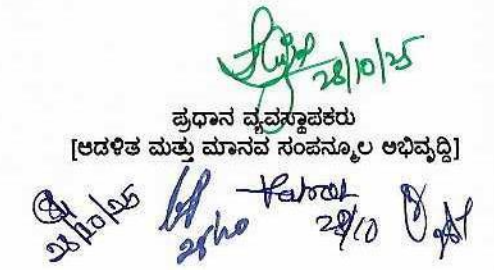 28/10/25
ಪ್ರಧಾನ ವ್ಯವಸ್ಥಾಪಕರು
[ಆಡಳಿತ ಮತ್ತು ಮಾನವ ಸಂಪನ್ಮೂಲ ಅಭಿವೃದ್ಧಿ]
28/10/25 28/10 28/10